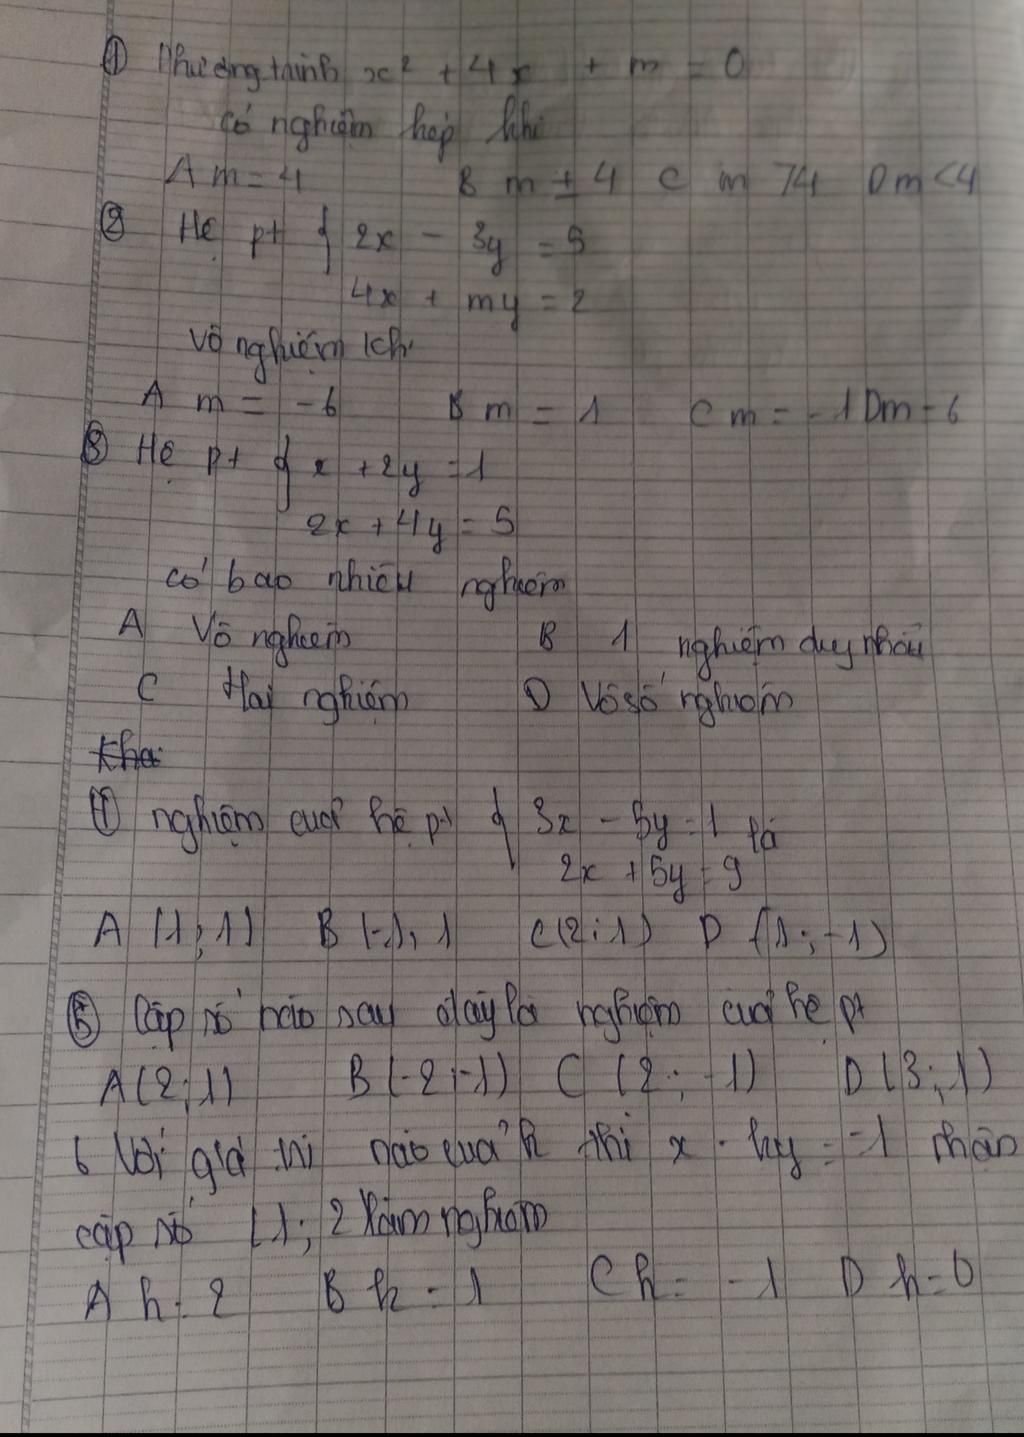 ① Phương trình x² + 4x + m = 0
có nghiệm kép khi
A m = 4 B m ± 4 C m > 4 D m < 4
② Hệ pt { 2x - 3y = 5
4x + my = 2
Vô nghiệm khi
A m = -6 B m = 1 C m = -1 D m = 6
③ Hệ pt { x + 2y = 1
2x + 4y = 5
có bao nhiêu nghiệm
A Vô nghiệm B 1 nghiệm duy nhất
C Hai nghiệm D Vô số nghiệm
④ nghiệm của hệ pt { 3x - 5y = 1 là
2x + 5y = 9
A (1; 1) B (-1; 1 C (2; 1) D (1; -1)
⑤ Cặp số nào sau đây là nghiệm của hệ pt
A (2; 1) B (-2; -1) C (2; -1) D (3; 1)
6 Với giá trị nào của k thì x - ky = -1 nhận
cặp số (1; 2 làm nghiệm
A k = 2 B k = 1 C k = -1 D k = 0